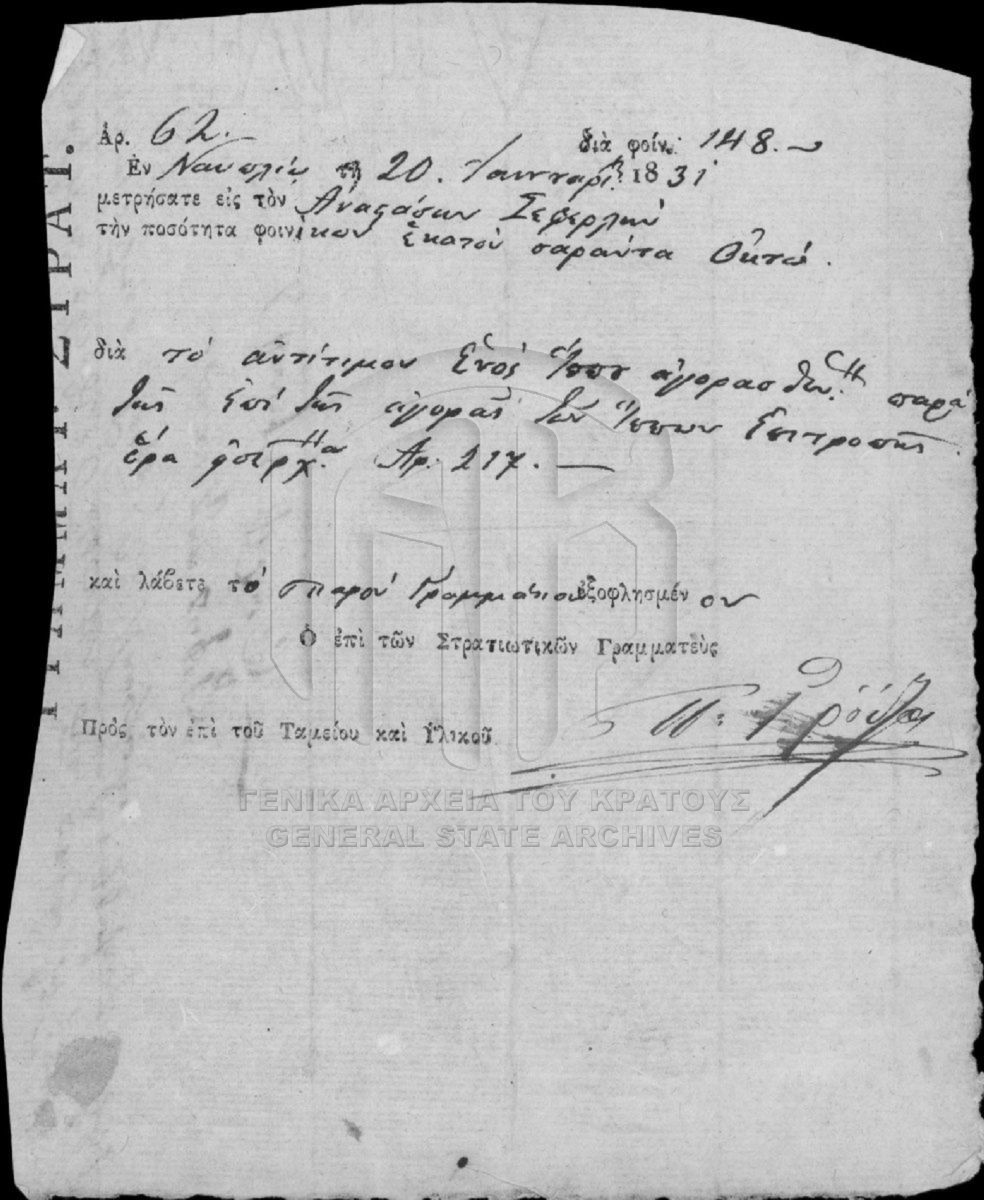 Ἀρ. 62.— διὰ φοίν. 148.—
Ἐν Ναυπλίῳ τῇ 20. Ἰανουαρίου 1831
μετρήσατε εἰς τὸν Ἀναστάσιον Σεφερλῆν
τὴν ποσότητα φοινίκων ἑκατὸν σαράντα ὀκτώ.
διὰ τὸ ἀντίτιμον ἑνὸς ἵππου ἀγορασθέντος παρὰ
τῆς ἐπὶ τῆς ἀγορᾶς τῶν ἵππων Ἐπιτροπῆς.
Ἀρ. 217.—
καὶ λάβετε τὸ παρὸν Γραμμάτιον ἐξοφλησμένον
Ὁ ἐπὶ τῶν Στρατιωτικῶν Γραμματεὺς
Π. Ῥόδιος
Πρὸς τὸν ἐπὶ τοῦ Ταμείου καὶ Ὑλικοῦ
ΓΕΝΙΚΑ ΑΡΧΕΙΑ ΤΟΥ ΚΡΑΤΟΥΣ
GENERAL STATE ARCHIVES